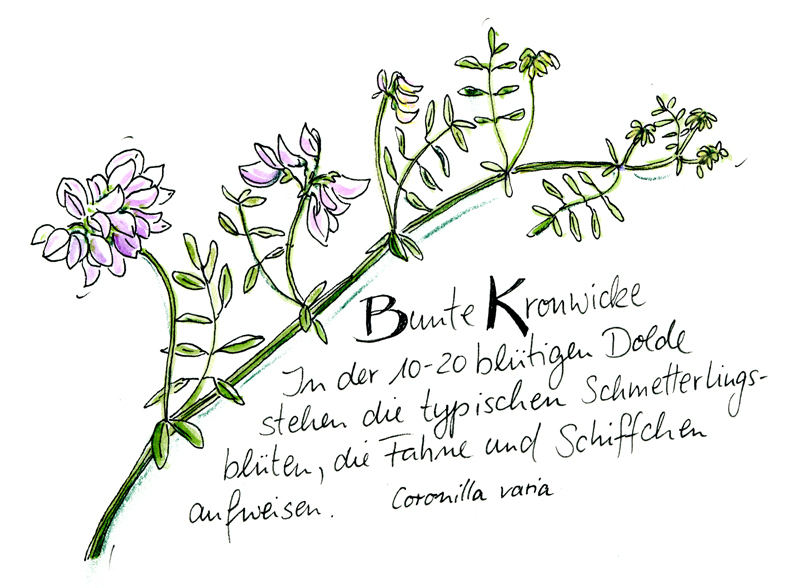 Bunte Kronwicke
In der 10-20 blütigen Dolde
stehen die typischen Schmetterlings-
blüten, die Fahne und Schiffchen
aufweisen. Coronilla varia